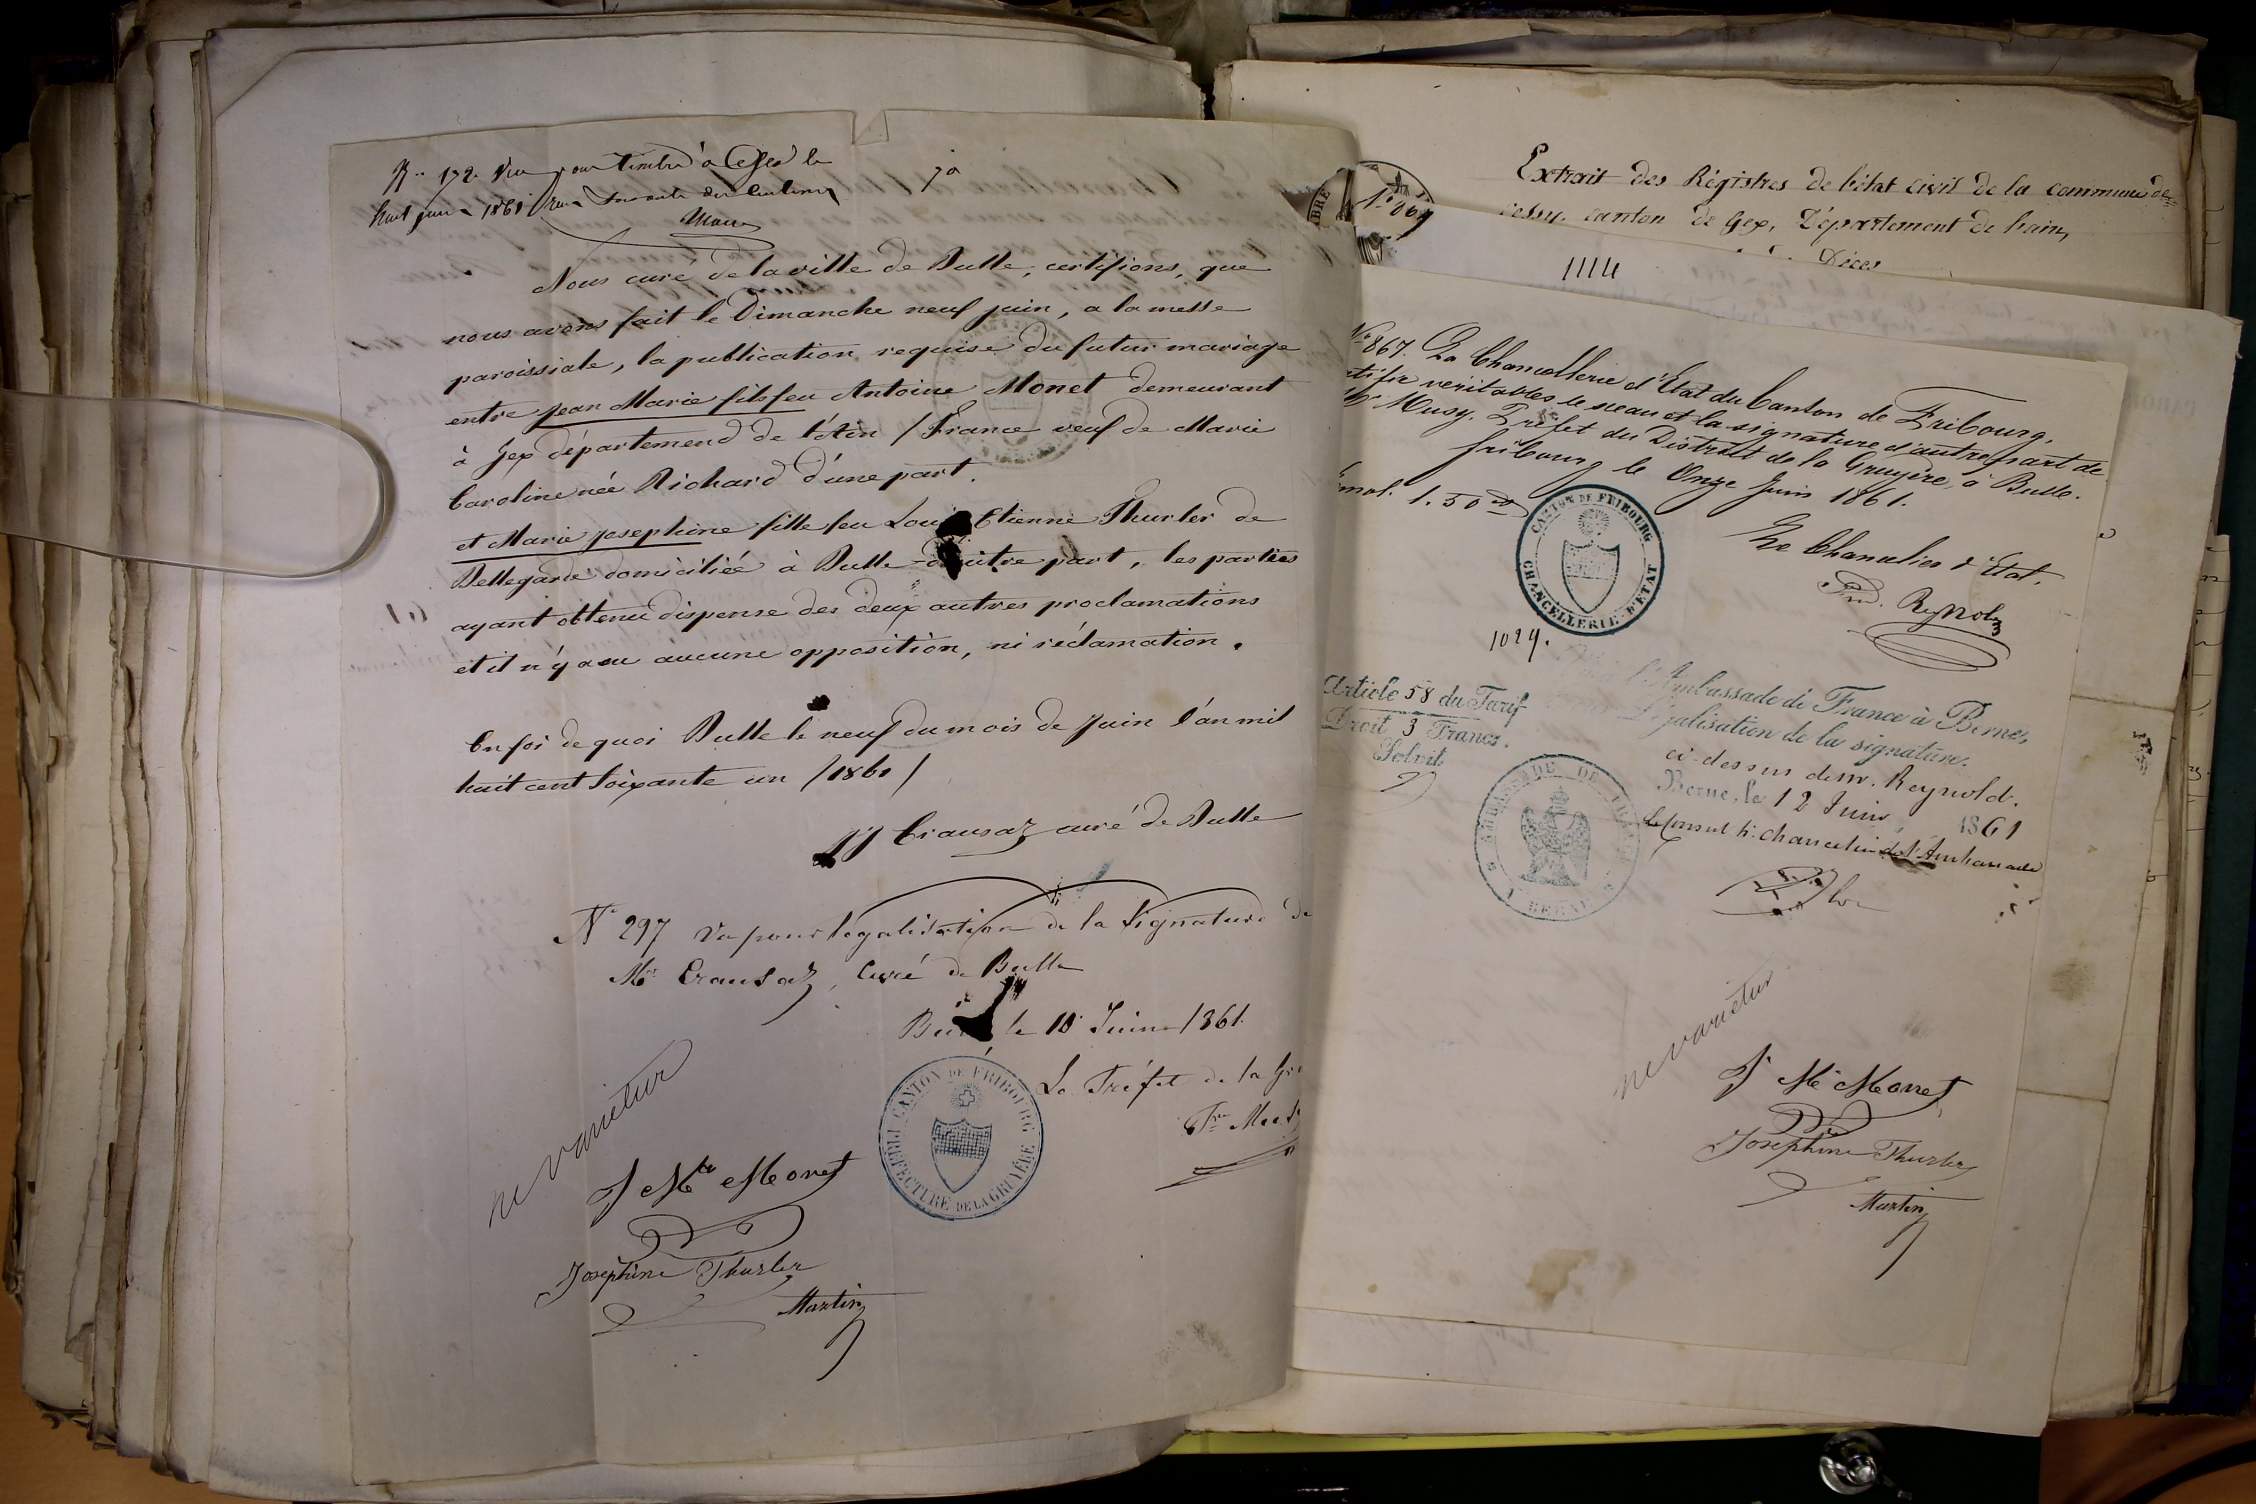 Vu pour timbre à Gex le
huit juin 1861
70
Nous curé de la ville de Bulle, certifions, que
nous avons fait le Dimanche neuf juin, a la messe
paroissiale, la publication requise du futur mariage
entre Jean Marie fils feu Antoine Monet demeurant
à Gex département de l'Ain / France veuf de Marie
Caroline née Richard d'une part.
et Marie Josephine fille feu Louis Etienne Thurler de
Bellegarde domiciliée à Bulle d'autre part, les parties
ayant obtenu dispense des deux autres proclamations
et il n'y a eu aucune opposition, ni réclamation.
En foi de quoi Bulle le neuf du mois de Juin l'an mil
huit cent soixante un /1861/
JJ Crausaz curé de Bulle
N° 297 Vu pour légalisation de la signature de
Mr Crausaz, Curé de Bulle
Bulle le 10 Juin 1861.
Le Préfet de la
PREFECTURE DE LA GRUYÈRE CANTON DE FRIBOURG
ne varietur
J Mie Monet
Josephine Thurler
Martin
Extrait des Régistres de l'état civil de la commune de
cessy, canton de Gex, Département de l'ain,
Décès
1114
N° 867. La Chancellerie d'Etat du Canton de Fribourg,
certifie véritables le sceau et la signature d'autre part de
Mr Musy. Préfet du District de la Gruyère, à Bulle.
Fribourg le Onze Juin 1861.
Emol. 1.50
CANTON DE FRIBOURG CHANCELLERIE D'ETAT
Le Chancelier d'Etat.
Reynold
1029.
Article 58 du Tarif
Droit 3 Francs.
Solvit
l'Ambassade de France à Berne,
Légalisation de la signature.
ci-dessus de M. Reynold.
Berne, le 12 Juin 1861
Le Consul hre chancelier de l'Ambassade
AMBASSADE DE FRANCE A BERNE
ne varietur
J Mie Monet
Josephine Thurler
Martin